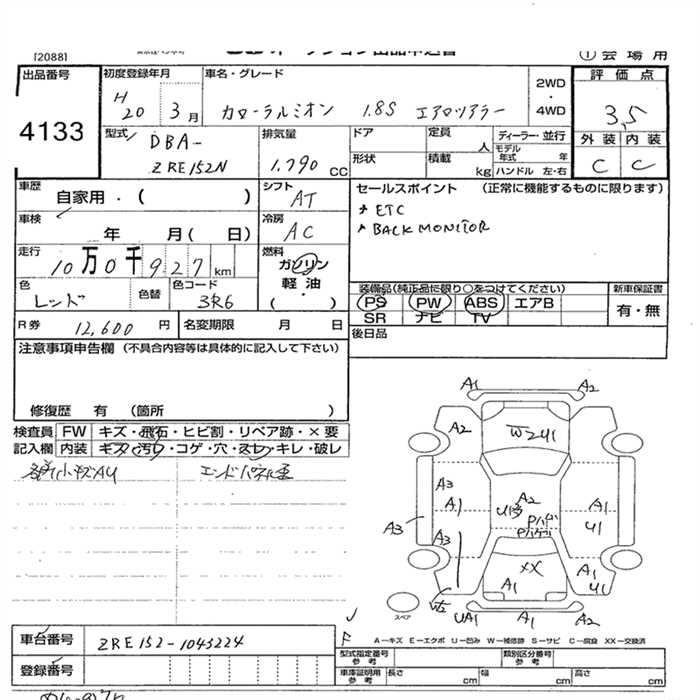 [2088]
① 会 場 用
出品番号
4133
初度登録年月
H 20 3 月
車名・グレード
カローラルミオン 1.8S エアロツアラー
2WD
・
4WD
評 価 点
3.5
外 装 内 装
C C
型式
DBA-
ZRE152N
排気量
1.790 CC
ドア
定員
人
ディーラー・並行
モデル年式 年
形状
積載
kg
ハンドル 左・右
車歴
自家用・( )
シフト
AT
セールスポイント (正常に機能するものに限ります)
ETC
BACK MONITOR
車検
年 月( 日)
冷房
AC
走行
10万0千927km
燃料
ガソリン
軽 油
( ・ )
色
レッド
色替
色コード
3R6
装備品(純正品に限り○をつけてください)
PS PW ABS エアB
SR ナビ TV
新車保証書
有・無
R券
12,600 円
名変期限 月 日
後日品
注意事項申告欄 (不具合内容等は具体的に記入して下さい)
修復歴 有 (箇所 )
検査員
記入欄
FW キズ・飛石・ヒビ割・リペア跡・×要
内装 キズ・汚レ・コゲ・穴・スレ・キレ・破レ
各所小キズAU
エンドパネル歪
A1 A2
A2 W2U1
A3 A1 A2 A1
U1
A3 A3
XX
A1 A1 U1
UA1 A1 A2
スペア
A―キズ E―エクボ U―凹み W―補修跡 S―サビ C―腐食 XX―交換済
車台番号
ZRE152-1045224
登録番号
型式指定番号
参考
類別区分番号
参考
車庫証明用
参考
長さ cm 幅 cm 高さ cm